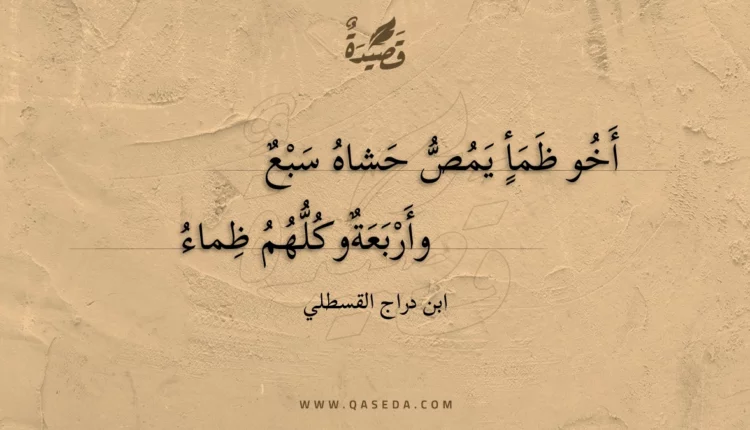 قَصِيدَةٌ
أَخُو ظَمَأٍ يَمُصُّ حَشاهُ سَبْعٌ
وأَرْبَعَةٌ وكُلُّهُمُ ظِماءُ
ابن دراج القسطلي
WWW.QASEDA.COM